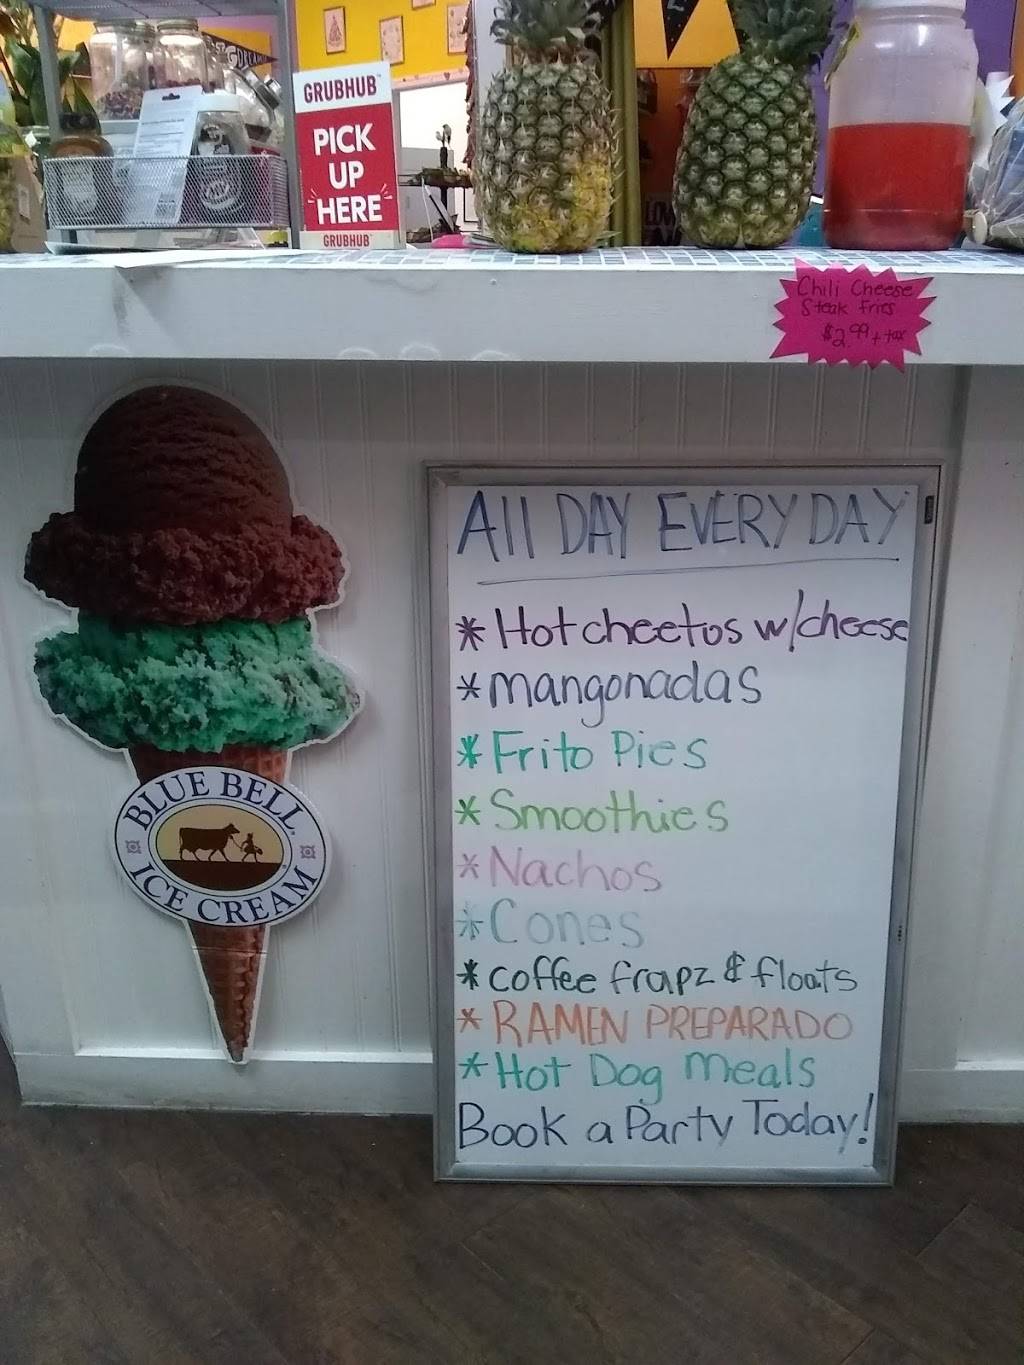 GRUBHUB
PICK
UP
HERE
GRUBHUB
Chili Cheese
Steak Fries
$2.99 + tax
BLUE BELL
ICE CREAM
All DAY EVERY DAY
* Hot cheetos w/cheese
* mangonadas
* Frito Pies
* Smoothies
* Nachos
* Cones
* coffee frapz & floats
* RAMEN PREPARADO
* Hot Dog meals
Book a Party Today!